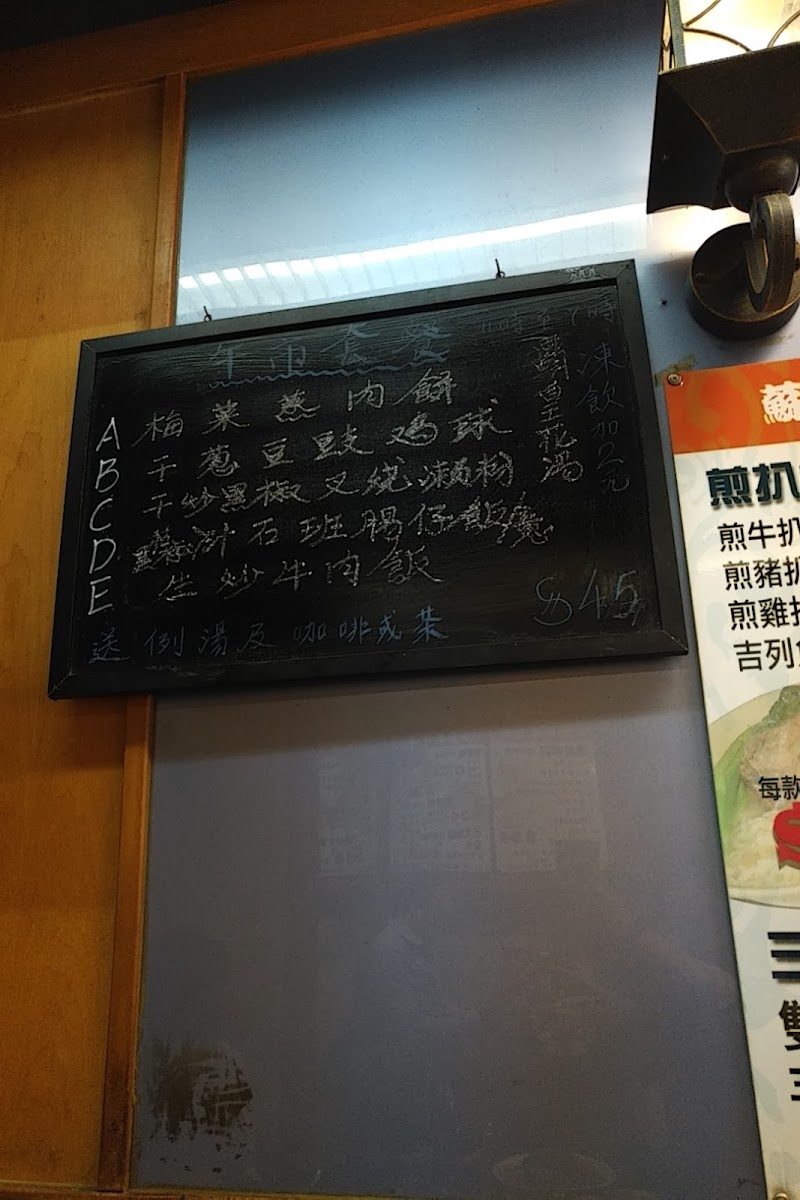 午市套餐
11時至
時
凍飲加2元
霸王花湯
A 梅菜蒸肉餅
B 干葱豆豉鸡球
C 干炒黑椒叉烧瀨粉
D 汁石班腸仔飯
E 生炒牛肉飯
送例湯及咖啡或茶
$45
蘇
煎扒
煎牛扒
煎豬扒
煎雞扒
吉列
每款
$
三
雙